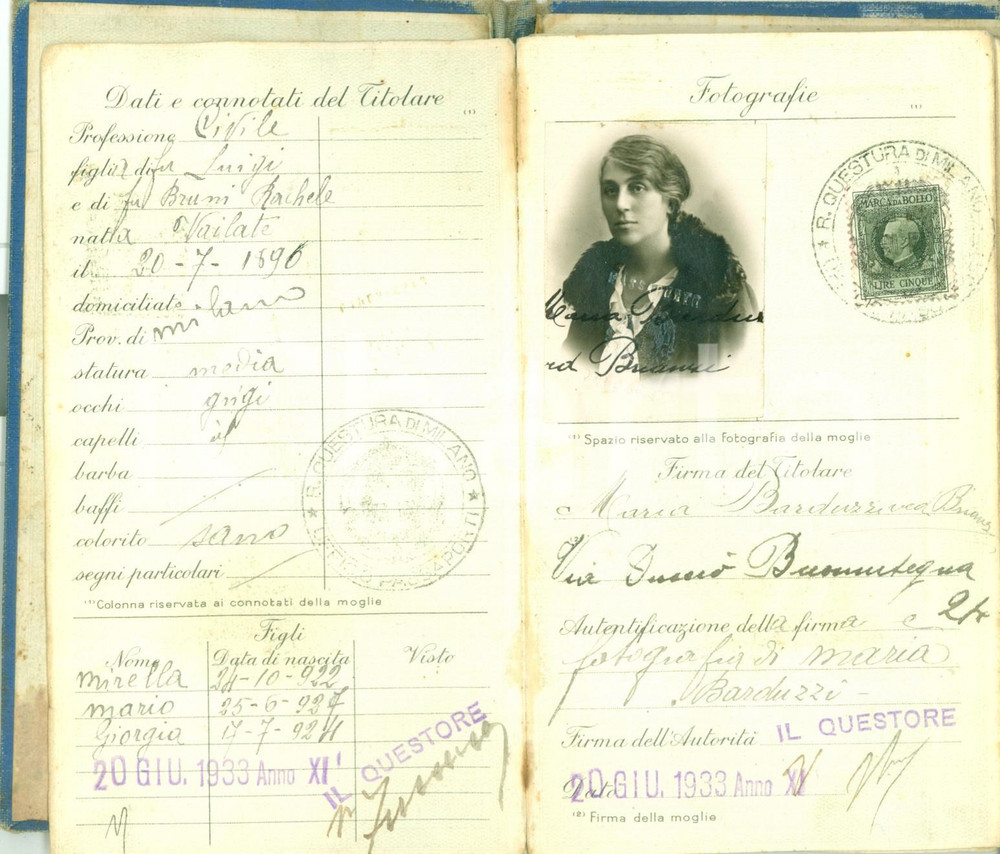 Dati e connotati del Titolare
(1)
Professione Civile
figlia di fu Luigi
e di fu Bruni Rachele
nata a Vailate
il 20-7-1896
domiciliato milano
Prov. di
statura media
occhi grigi
capelli
barba
baffi
colorito sano
segni particolari
R. QUESTURA DI MILANO
(1) Colonna riservata ai connotati della moglie
Figli
Nome Data di nascita Visto
mirella 24-10-922
mario 25-6-927
Giorgia 17-7-924
20 GIU. 1933 Anno XI
IL QUESTORE
Fotografie
(1)
R. QUESTURA DI MILANO
MARCA DA BOLLO
LIRE CINQUE
Maria
(1) Spazio riservato alla fotografia della moglie
Firma del Titolare
Maria Barduzzi
Via
24
Autentificazione della firma e
fotografia di maria
Barduzzi
Firma dell'Autorità IL QUESTORE
Data 20 GIU. 1933 Anno XI
(2) Firma della moglie